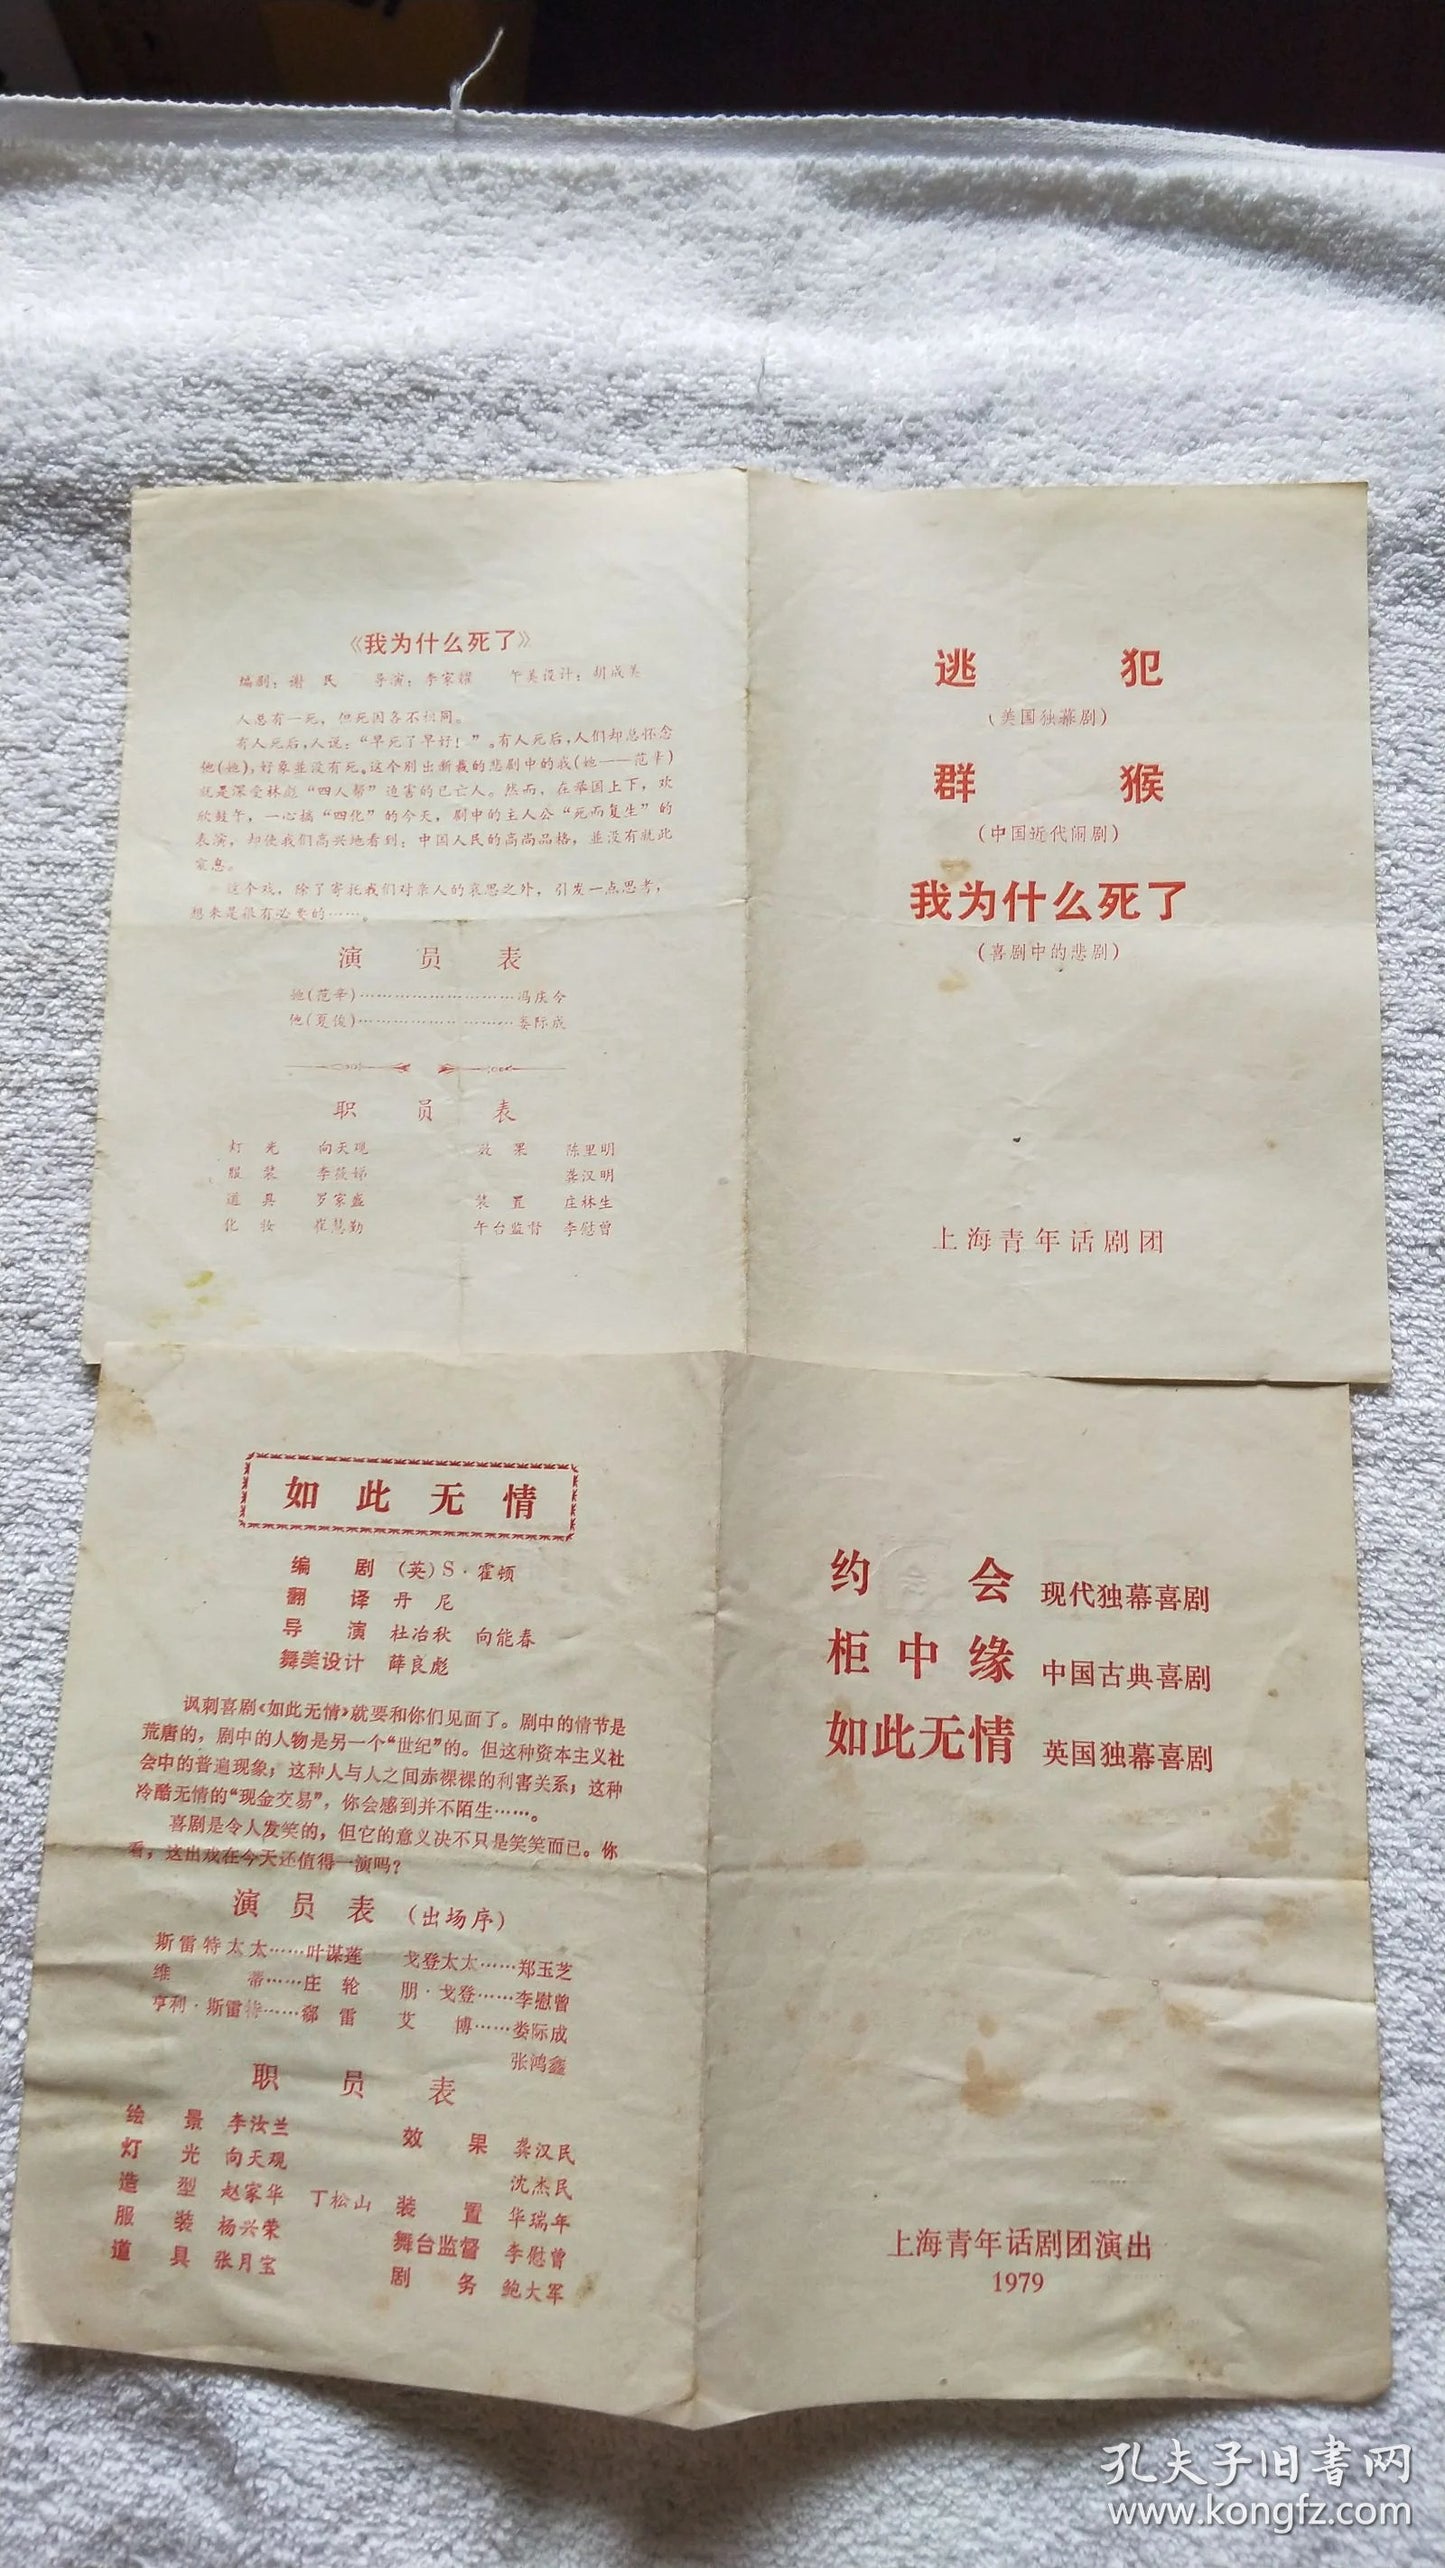 《我为什么死了》
编剧：谢 民 导演：李家耀 午美设计：胡成美
人总有一死，但死因各不相同。
有人死后，人说：“早死了早好！”。有人死后，人们却总怀念
他(她)，好象並没有死。这个别出新裁的悲剧中的我(她——范辛)
就是深受林彪“四人帮”迫害的已亡人。然而，在举国上下，欢
欣鼓午，一心搞“四化”的今天，剧中的主人公“死而复生”的
表演，却使我们高兴地看到：中国人民的高尚品格，並没有就此
窒息。
这个戏，除了寄托我们对亲人的哀思之外，引发一点思考，
想来是很有必要的……。
演 员 表
她(范辛)………………………冯庆令
他(夏俊)………………………娄际成
职 员 表
灯 光 向天观 效 果 陈里明
服 装 李薇娣 龚汉明
道 具 罗家盛 装 置 庄林生
化 妆 崔慧勤 午台监督 李慰曾
逃 犯
(美国独幕剧)
群 猴
(中国近代闹剧)
我为什么死了
(喜剧中的悲剧)
上海青年话剧团
如此无情
编 剧 (英)S·霍顿
翻 译 丹 尼
导 演 杜冶秋 向能春
舞美设计 薛良彪
讽刺喜剧《如此无情》就要和你们见面了。剧中的情节是
荒唐的，剧中的人物是另一个“世纪”的。但这种资本主义社
会中的普遍现象；这种人与人之间赤裸裸的利害关系；这种
冷酷无情的“现金交易”，你会感到并不陌生……。
喜剧是令人发笑的，但它的意义决不只是笑笑而已。你
看，这出戏在今天还值得一演吗？
演 员 表 (出场序)
斯雷特太太……叶谋莲 戈登太太……郑玉芝
维 蒂……庄 轮 朋·戈登……李慰曾
亨利·斯雷特……鄢 雷 艾 博……娄际成
张鸿鑫
职 员 表
绘 景 李汝兰 效 果 龚汉民
灯 光 向天观 沈杰民
造 型 赵家华 丁松山 装 置 华瑞年
服 装 杨兴荣 舞台监督 李慰曾
道 具 张月宝 剧 务 鲍大军
约 会 现代独幕喜剧
柜中缘 中国古典喜剧
如此无情 英国独幕喜剧
上海青年话剧团演出
1979
孔夫子旧书网
www.kongfz.com